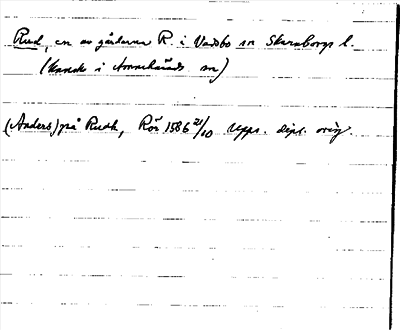 Rud, en av gårdarna R. i Vadsbo sn Skaraborgs l.
(kanske i Amnehärads sn)
(Anders) på Rudh, Rör 1586 21/10 Upps. dipl. orig.